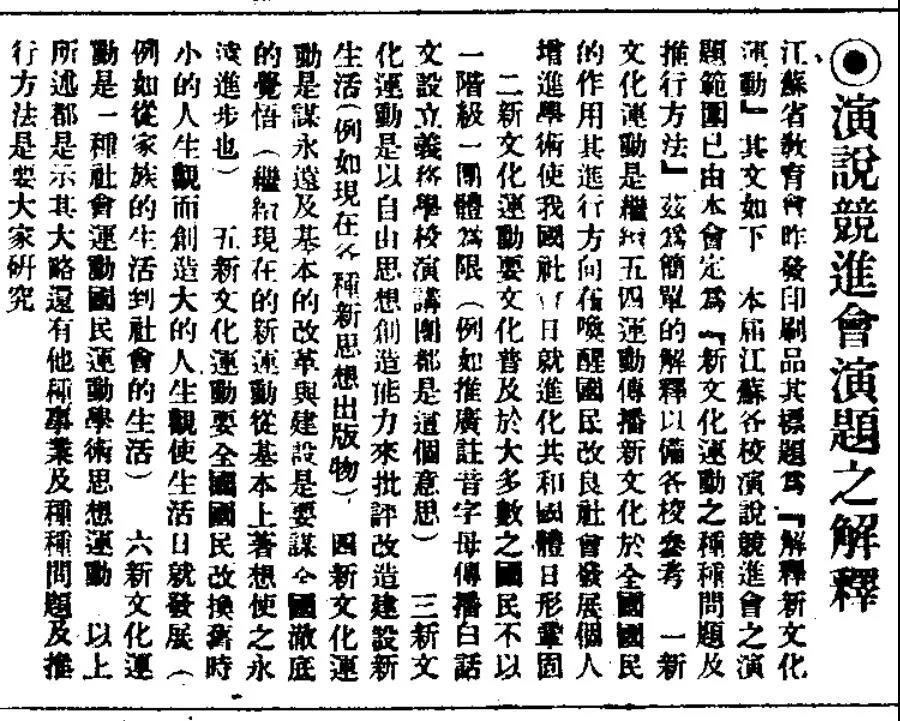 ◉演說競進會演題之解釋
江蘇省教育會昨發印刷品其標題爲『解釋新文化
運動』其文如下　本屆江蘇各校演說競進會之演
題範圍已由本會定爲『新文化運動之種種問題及
推行方法』茲爲簡單的解釋以備各校參考　一新
文化運動是繼續五四運動傳播新文化於全國國民
的作用其進行方向在喚醒國民改良社會發展個人
增進學術使我國社會日就進化共和國體日形鞏固
二新文化運動要文化普及於大多數之國民不以
一階級一團體爲限（例如推廣註音字母傳播白話
文設立義務學校演講團都是這個意思）　三新文
化運動是以自由思想創造能力來批評改造建設新
生活（例如現在各種新思想出版物）　四新文化運
動是謀永遠及基本的改革與建設是要謀全國澈底
的覺悟（繼續現在的新運動從基本上著想使之永
遠進步也）　五新文化運動要全國國民改換舊時
小的人生觀而創造大的人生觀使生活日就發展（
例如從家族的生活到社會的生活）　六新文化運
動是一種社會運動國民運動學術思想運動　以上
所述都是示其大略還有他種事業及種種問題及推
行方法是要大家研究